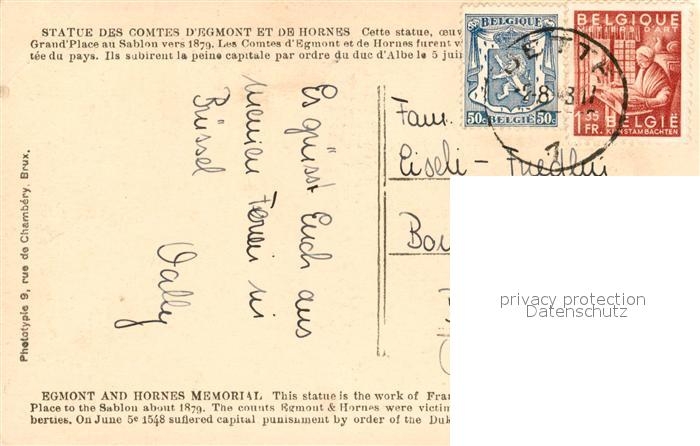 STATUE DES COMTES D'EGMONT ET DE HORNES Cette statue, œuv
Grand'Place au Sablon vers 1879. Les Comtes d'Egmont et de Hornes furent v
tée du pays. Ils subirent la peine capitale par ordre du duc d'Albe le 5 jui
BELGIQUE
METIERS D'ART
1 35
FR.
BELGIË
KUNSTAMBACHTEN
50c BELGIË 50c
JETTE
1
Es grüsst Euch aus
meinen Ferien in
Brüssel
Vally
Fam.
Eiseli - Friedlin
Phototypie 9, rue de Chambéry, Brux.
privacy protection
Datenschutz
EGMONT AND HORNES MEMORIAL This statue is the work of Fra
Place to the Sablon about 1879. The counts Egmont & Hornes were victim
berties. On June 5e 1548 suffered capital punishment by order of the Duk